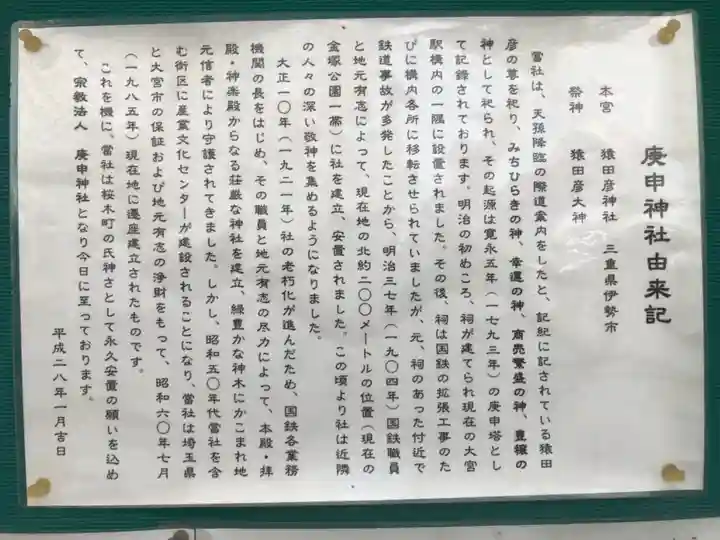 庚申神社由来記
本宮 猿田彦神社 三重県伊勢市
祭神 猿田彦大神
當社は、天孫降臨の際道案内をしたと、記紀に記されている猿田
彦の尊を祀り、みちひらきの神、幸運の神、商売繁盛の神、豊穣の
神として祀られ、その起源は寛永五年(一七九三年)の庚申塔とし
て記録されております。明治の初めころ、祠が建てられ現在の大宮
駅構内の一隅に設置されました。その後、祠は国鉄の拡張工事のた
びに構内各所に移転させられていましたが、元、祠のあった付近で
鉄道事故が多発したことから、明治三七年(一九〇四年)国鉄職員
と地元有志によって、現在地の北約二〇〇メートルの位置(現在の
金塚公園一帯)に社を建立、安置されました。この頃より社は近隣
の人々の深い敬神を集めるようになりました。
大正一〇年(一九二一年)社の老朽化が進んだため、国鉄各業務
機関の長をはじめ、その職員と地元有志の尽力によって、本殿・拝
殿・神楽殿からなる荘厳な神社を建立、緑豊かな神木にかこまれ地
元信者により守護されてきました。しかし、昭和五〇年代當社を含
む街区に産業文化センターが建設されることになり、當社は埼玉県
と大宮市の保証および地元有志の浄財をもって、昭和六〇年七月
(一九八五年)現在地に遷座建立されたものです。
これを機に、當社は桜木町の氏神さとして永久安置の願いを込め
て、宗教法人 庚申神社となり今日に至っております。
平成二八年一月吉日